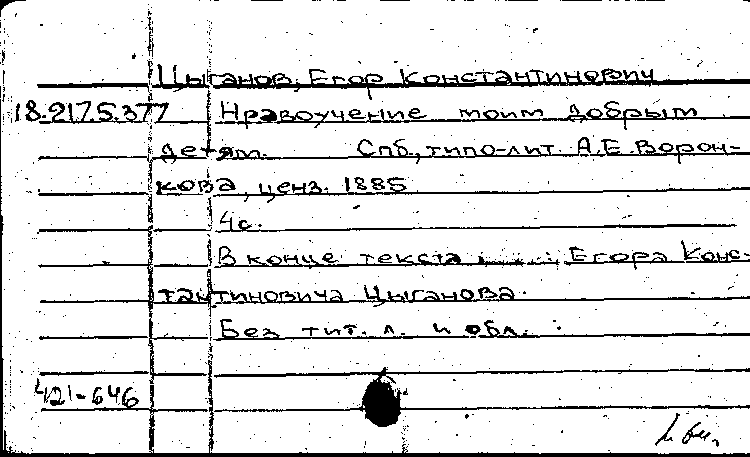 Цыганов, Егор Константинович
18.217.5.377 Нравоучение моим добрым
детям. Спб., типо-лит. А.Е. Ворон-
кова, ценз. 1885
4с.
В конце текста Егора Конс-
тантиновича Цыганова.
Без тит. л. и обл.
421-646